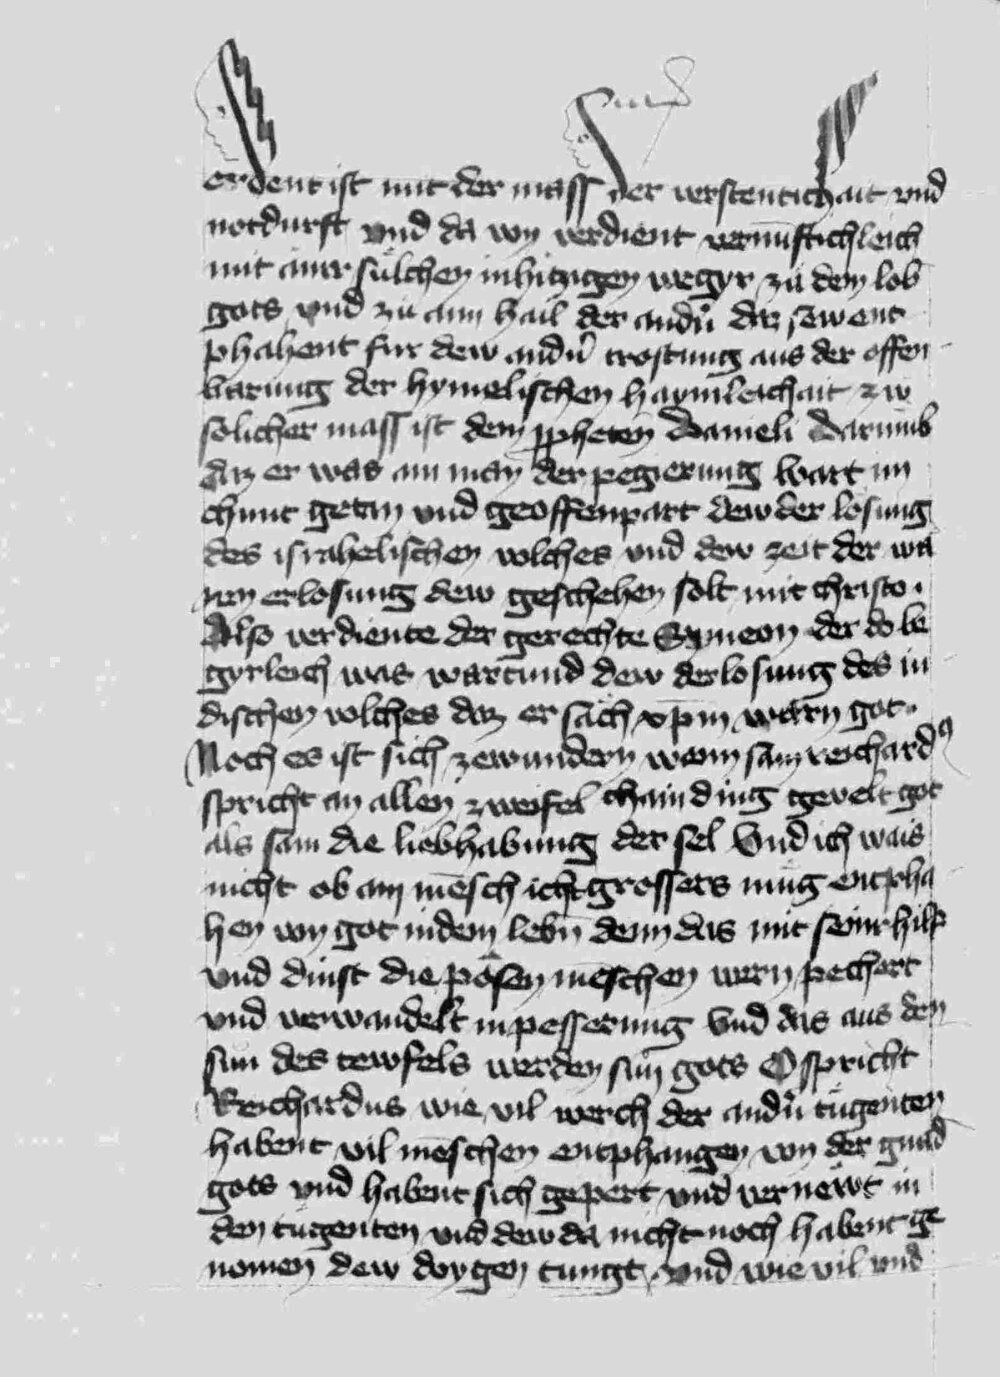 erdent ist mit der mass der verstentichait vnd
notdurft vnd da von verdient vernuftichleich
mit ainer sulchen inhitzigen wegyr zu dem lob
gots vnd zu aim hail der andn daz sew ent
phahent fur dew andn trostung aus der offen
barung der hymelischen haymleichait zw
solicher mass ist dem ppheten Danieli Darumb
daz er was ain man der pegierung wart im
chunt getan vnd geoffenpart dew der losung
des israhelischen volches vnd dew zeit der wa
ren erlosung dew geschehen solt mit christo.
Also verdiente der gerechte Symeon der do be
gyrleich was wartund dew derlosung des iu
dischen volches daz er sach xpm warn got.
Noch es ist sich zewundern wann sam reichardus
spricht an allen zweifel chain ding gevelt got
als sam die liebhabung der sel Vnd ich wais
nicht ob ain mesch icht grossers mug entpha
hen von got indem lebn denn das mit seinr hilf
vnd dinst die posen meschen wern pechert
vnd verwandelt in pesserung Vnd das aus den
sun des tewfels werden sun gots O spricht
Reichardus wie vil werch der andn tugenten
habent vil meschen entphangen von der gnad
gots vnd habent sich gepert vnd vernewt in
den tugenten vnd dew da nicht noch habent ge
nomen dew aygen tungt. vnd wie vil vnd